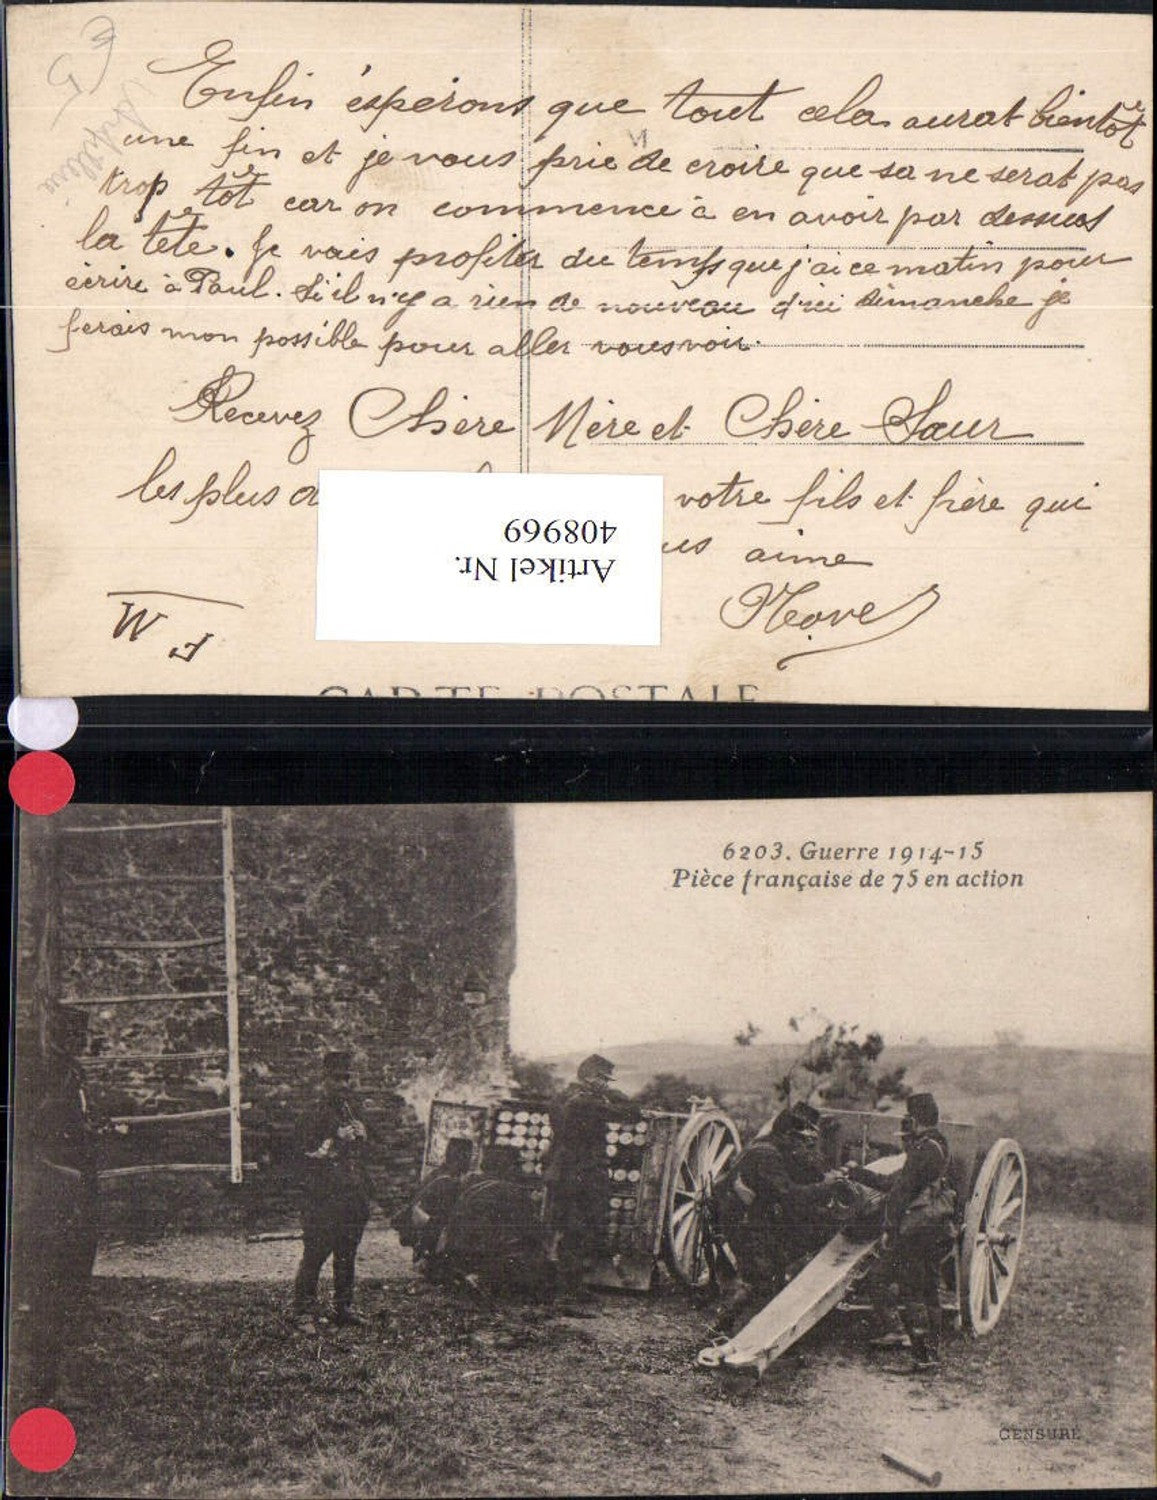 Enfin éspérons que tout cela aurat bientôt
une fin et je vous prie de croire que sa ne serat pas
trop tôt car on commence à en avoir par dessus
la tête. Je vais profiter du temps que j'ai ce matin pour
écrire à Paul. Si il n'y a rien de nouveau d'ici dimanche je
ferais mon possible pour aller vous voir.
Recevez Chère Mère et Chère Sœur
les plus votre fils et frère qui
aime
F M
Artikel Nr.
408969
CARTE POSTALE
6203. Guerre 1914-15
Pièce française de 75 en action
CENSURÉ